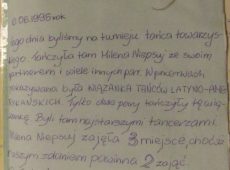 0.06.1996 rok
ego dnia byliśmy na turnieju tańca towarzys-
iego tańczyła tam Milena Niepsuj ze swoim
partnerem i wiele innych par. W
okazywana była WIĄZANKA TAŃCÓW LATYNO-AME
RYKAŃSKICH. Tylko dwie pary tańczyły tę wią
ankę. Byli tam najstarszymi tancerzami.
Milena Niepsuj zajęła 3 miejsce, chodź
naszym zdaniem powinna 2 zająć